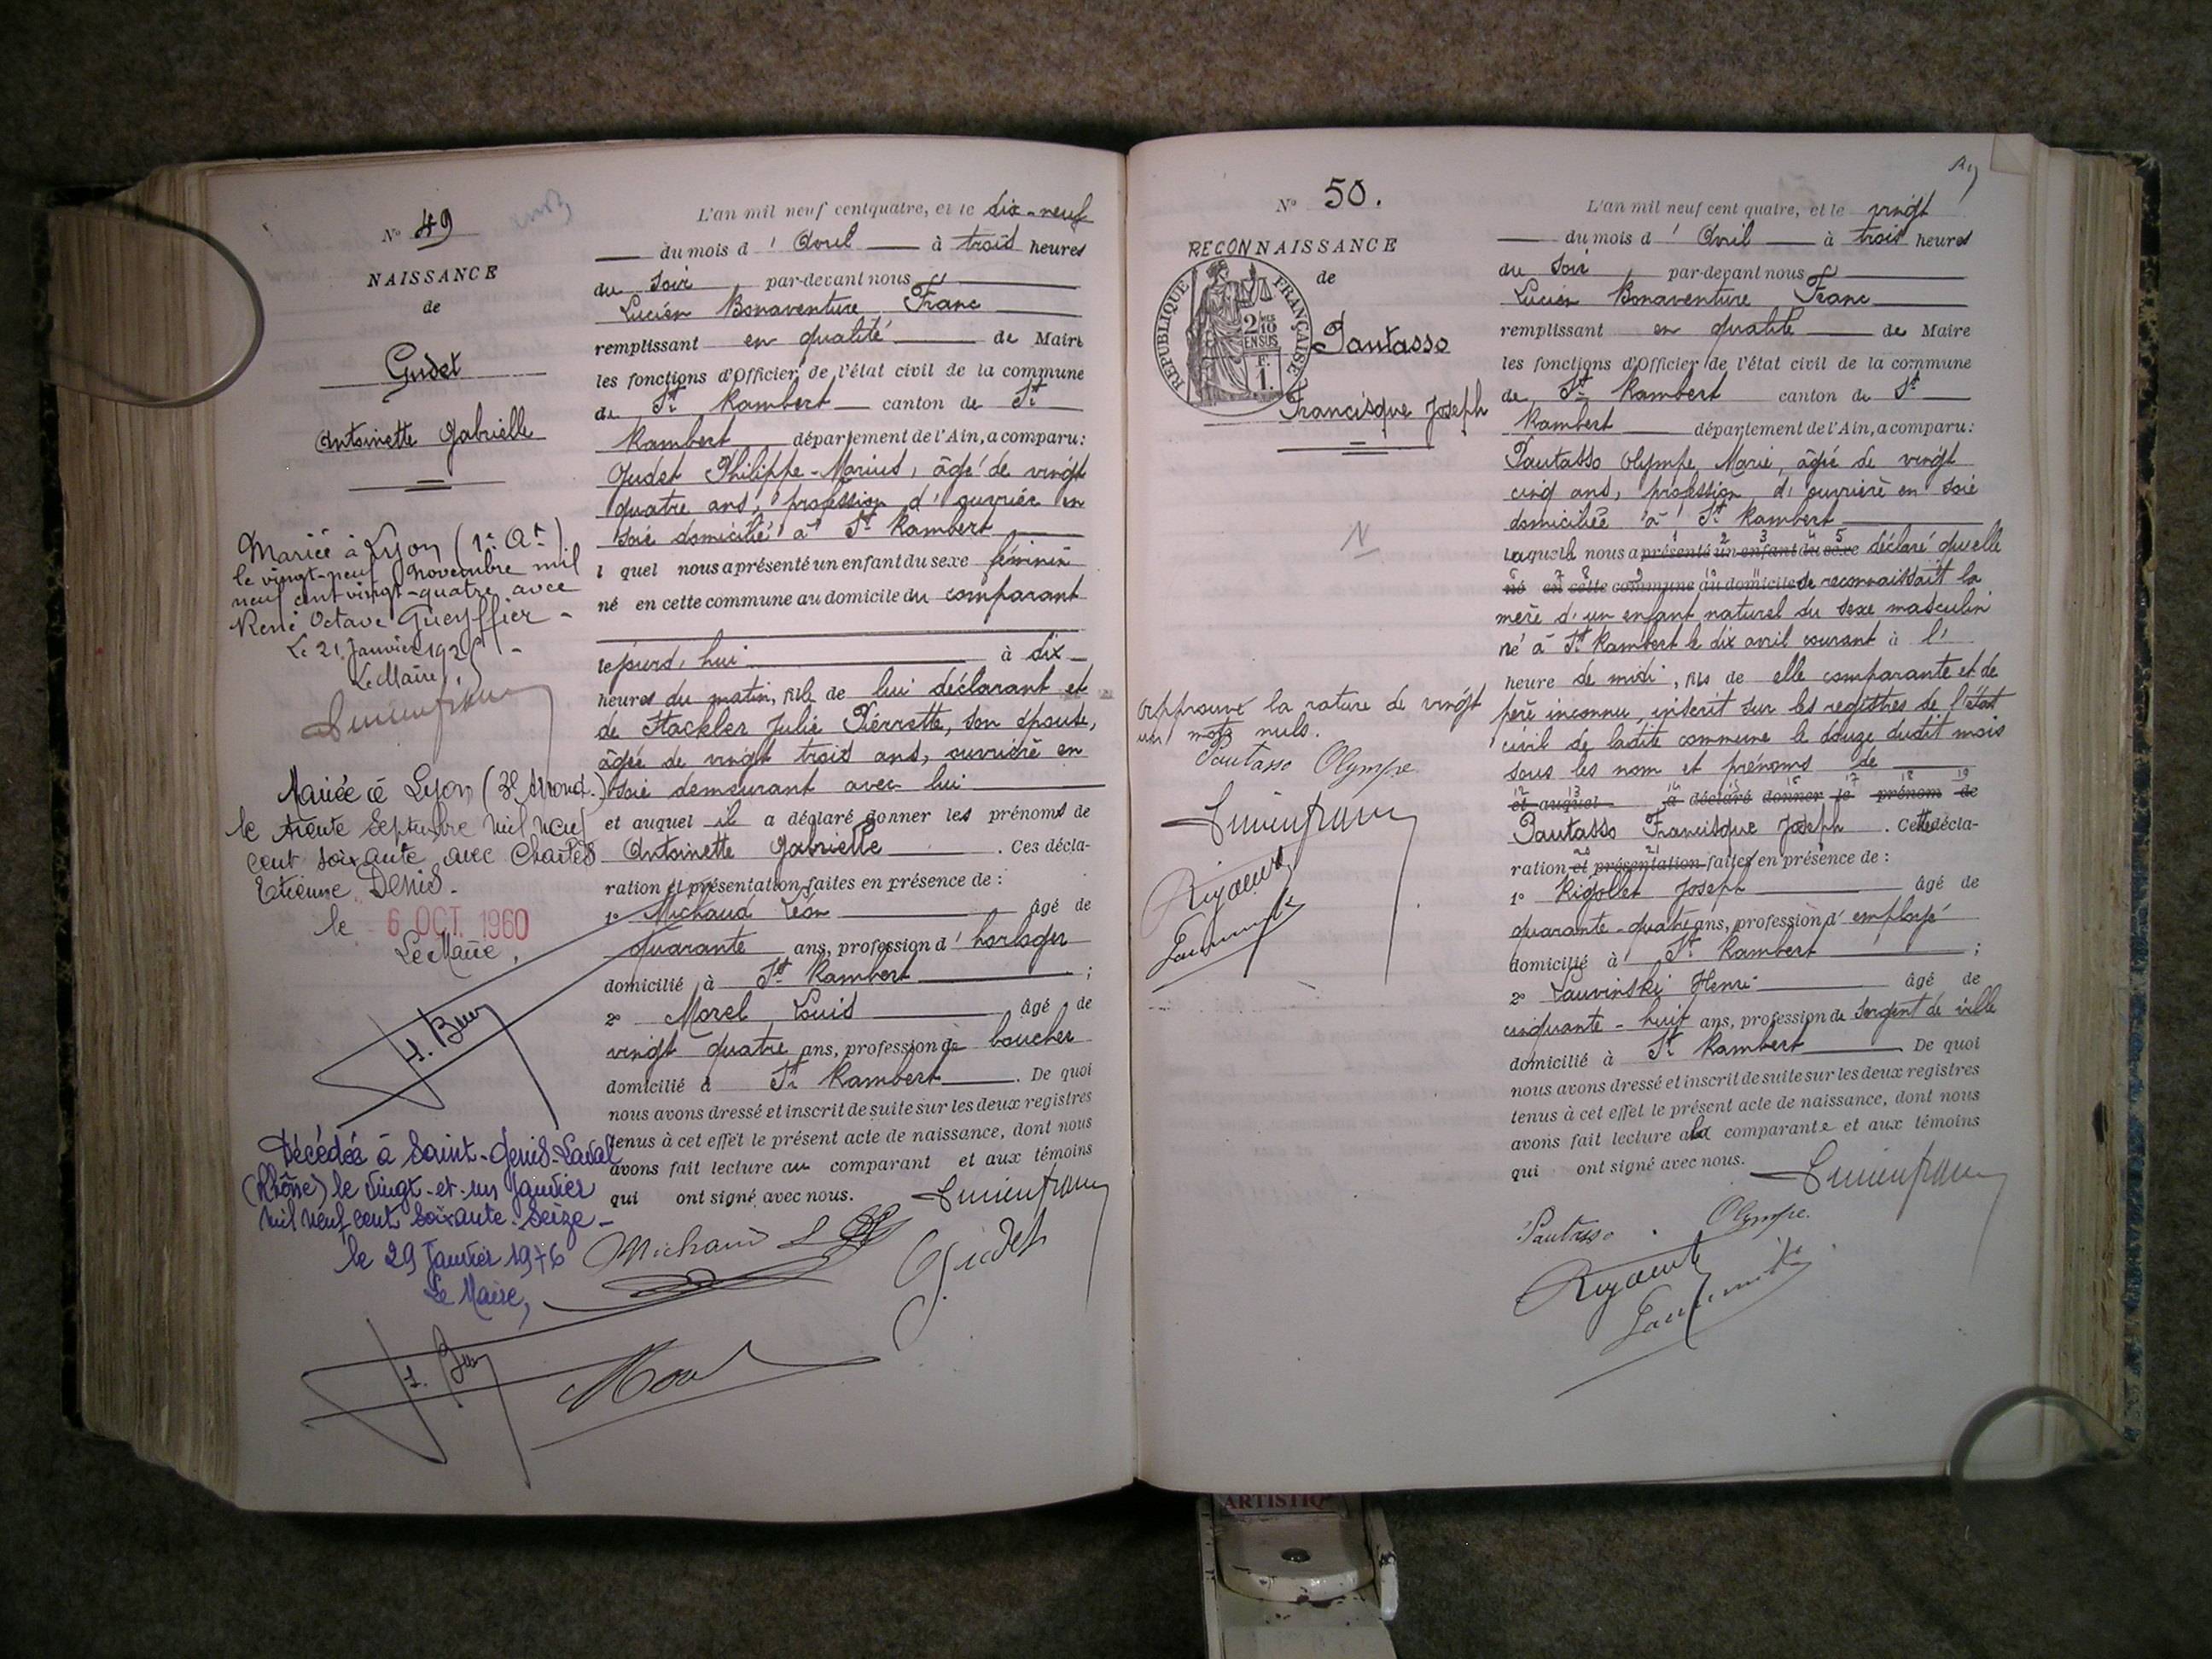 N° 49
NAISSANCE
de
Gudet
Antoinette Gabrielle
Mariée à Lyon (1er Art)
le vingt-neuf novembre mil
neuf cent vingt-quatre avec
René Octave Gueyffier -
Le 21 Janvier 1925 -
Le Maire,
Lucien franc
Mariée à Lyon (3e Arrond.)
le trente Septembre mil neuf
cent soixante avec Charles
Etienne DENIS.
le 6 OCT. 1960
Le Maire,
Décédée à Saint-Genis-Laval
(Rhône) le vingt-et-un Janvier
mil neuf cent soixante-seize -
le 29 Janvier 1976
Le Maire,
L'an mil neuf cent quatre, et le dix-neuf
du mois d'Avril à trois heures
du soir par-devant nous
Lucien Bonaventure Franc
remplissant en qualité de Maire
les fonctions d'Officier de l'état civil de la commune
de St Rambert canton de St
Rambert département de l'Ain, a comparu:
Gudet Philippe-Marius, âgé de vingt
quatre ans, profession d'ouvrier en
soie domicilié à St Rambert
l quel nous a présenté un enfant du sexe féminin
né en cette commune au domicile du comparant
cejourd'hui à dix
heures du matin, fille de lui déclarant et
de Stackler Julie Pierrette, son épouse,
âgée de vingt trois ans, ouvrière en
soie demeurant avec lui
et auquel il a déclaré donner les prénoms de
Antoinette Gabrielle . Ces décla-
ration et présentation faites en présence de :
1° Michaud Léon âgé de
quarante ans, profession d'horloger
domicilié à St Rambert ;
2° Morel Louis âgé de
vingt quatre ans, profession de boucher
domicilié à St Rambert . De quoi
nous avons dressé et inscrit de suite sur les deux registres
tenus à cet effet le présent acte de naissance, dont nous
avons fait lecture au comparant et aux témoins
qui ont signé avec nous. Lucien franc
Michaud L
Gudet
Morel
N° 50.
RECONNAISSANCE
de
REPUBLIQUE FRANÇAISE
2/10 EN SUS
F.
1.
Pautasso
Francisque Joseph
approuvé la rature de vingt
un mots nuls.
Pautasso Olympe
Lucien franc
L'an mil neuf cent quatre, et le vingt
du mois d'Avril à trois heures
du soir par-devant nous
Lucien Bonaventure Franc
remplissant en qualité de Maire
les fonctions d'Officier de l'état civil de la commune
de St Rambert canton de St
Rambert département de l'Ain, a comparu:
Pautasso Olympe Marie, âgée de vingt
cinq ans, profession d'ouvrière en soie
domiciliée à St Rambert
Laquelle nous a présenté un enfant du sexe déclaré quelle
né en cette commune au domicile se reconnaissait la
mère d'un enfant naturel du sexe masculin
né à St Rambert le dix avril courant à l'
heure de midi, fils de elle comparante et de
père inconnu, inscrit sur les registres de l'état
civil de ladite commune le douze dudit mois
sous les nom et prénoms de
et auquel a déclaré donner le prénom de
Pautasso Francisque Joseph . Cette décla-
ration et présentation faites en présence de :
1° Rigollet Joseph âgé de
quarante-quatre ans, profession d'employé
domicilié à St Rambert ;
2° Lauvinski Henri âgé de
cinquante-huit ans, profession de sergent de ville
domicilié à St Rambert De quoi
nous avons dressé et inscrit de suite sur les deux registres
tenus à cet effet le présent acte de naissance, dont nous
avons fait lecture à la comparante et aux témoins
qui ont signé avec nous. Lucien franc
Pautasso Olympe.
ARTISTIQ